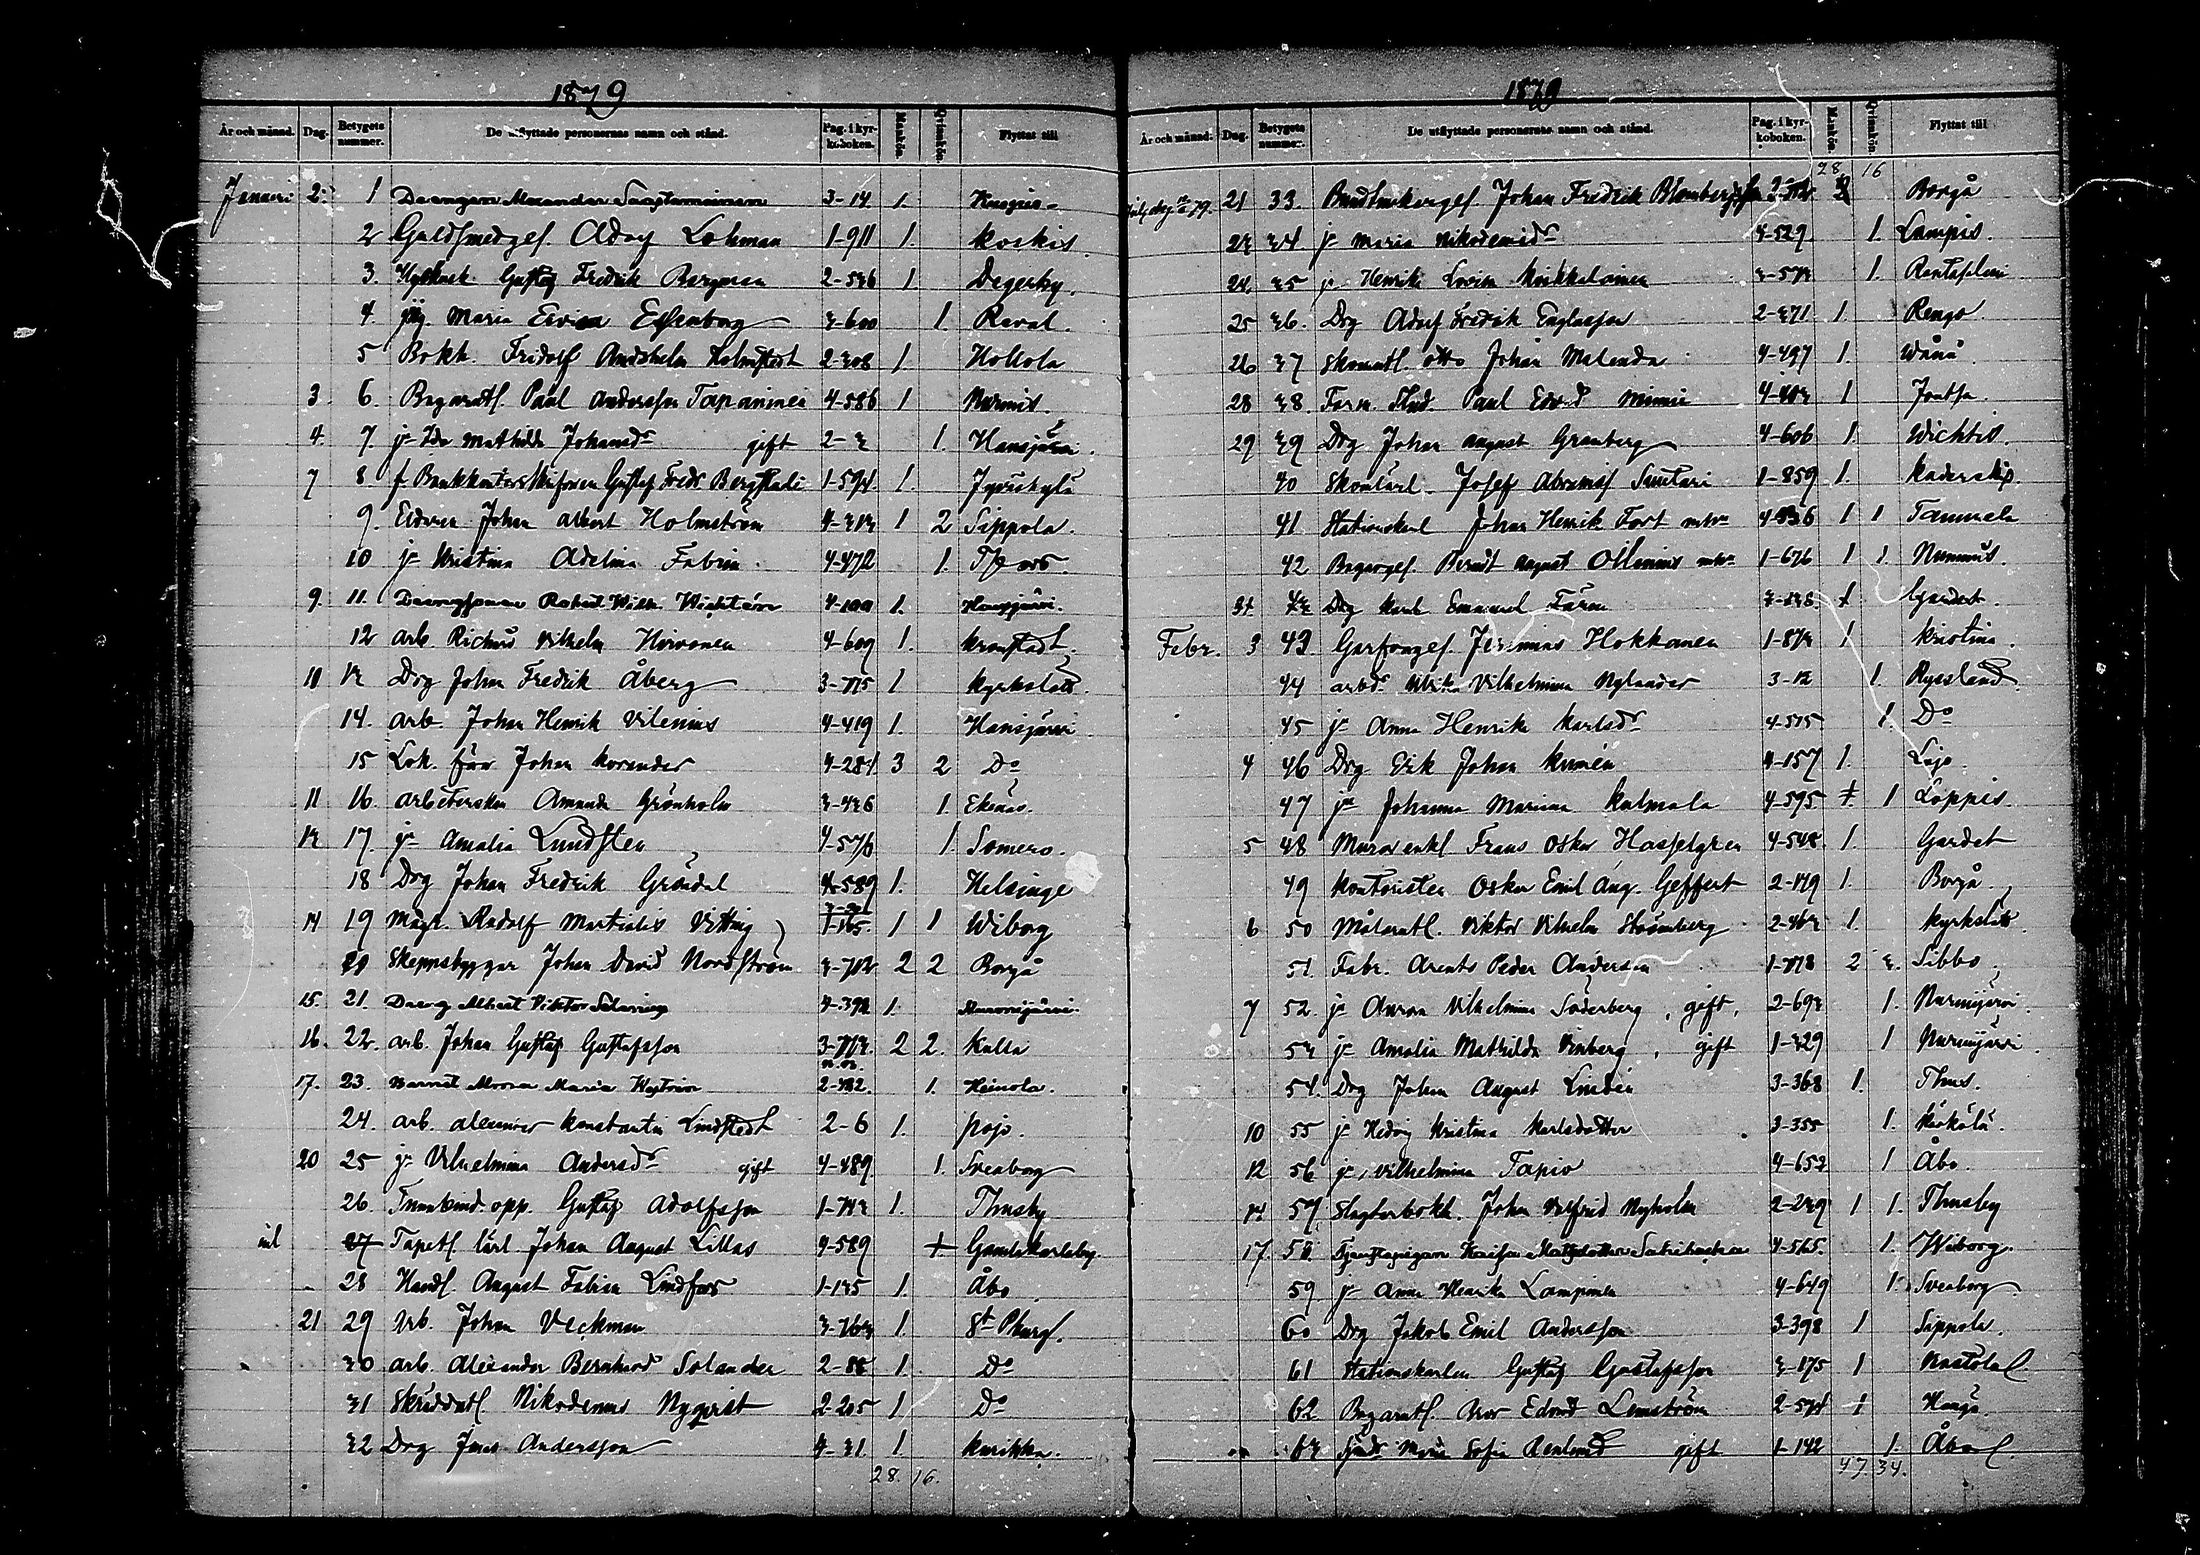 1879
År och månad. Dag. Betygets nummer. De utflyttade personernas namn och stånd. Pag. i kyrkoboken. Mankön. Qvinskön. Flyttat till
Januari 2. 1 3-14 1.
2 Guldsmedges. Adolf Lohman 1-911 1. Koskis
3. Gustaf Fredrik Bergman 2-536 1 Degerby.
4. Maria 3-600 1. Reval.
5 Bokh. Fridolf Holmstedt 2-308 1. Hollola
3. 6. Bagaratl. Paul Andersson Tapaninen 4-586 1 Nurmis.
4. 7. jn Ida Mathilda Johansdr gift 2-3 1. Hausjärvi.
7 8 f. Gustaf Fredr. 1-594 1. Jyväskylä
9. Johan Albert Holmström 4-313 1 2 Sippola.
10 jn Kristina Adelina Fabrin. 4-472 1. Tfors.
9. 11. Robert Wilh. 4-199 1. Hausjärvi.
12 arb. Richard Vilhelm Hirvonen 4-609 1. Kronstadt.
10 13 Drg Johan Fredrik Åberg 3-775 1 Kyrkslätt.
14. arb. Johan Henrik Vilenius 4-419 1. Hausjärvi
15 Lok. för Johan Korander 4-281 3 2 Do
11 16. arbeterskan Amanda Grönholm 3-436 1. Ekenäs.
13 17. jn Amalia Lundsten 4-576 1. Somero.
18 Drg Johan Fredrik Gröndal 4-589 1. Helsinge
14 19 Mag. Rudolf Martialis Vitting 1-165. 1 1 Wiborg
20 Skeppsbyggar Johan David Nordström 3-712 2 2 Borgå
15. 21. Dreng Albert Viktor 4-392 1.
16. 22. arb. Johan Gustaf Gustafsson 3-713. 2 2. Kulla
17. 23. Barnet Maria 2-782. 1. Heinola.
24. arb. Konstantin Lindstedt 2-6 1. Pojo.
20 25 jn Vilhelmina Andersdr gift 4-489. 1. Sveaborg
26. opp. Gustaf Adolfsson 1-743 1. Thusby
27 Tapets. lärl. Johan August Lillas 4-589 1 Gamlakarleby.
28 Handl. August Fabian Lindfors 1-135 1. Åbo.
21 29 Arb. Johan Veckman 3-763 1. St. Pburg.
30 arb. Alexander Bernhard Solander 2-88 1. Do
31 Skräddatl Nikodemus Nyqvist 2-205 1 Do
32 Drg Jonas Andersson 4-31 1. Kurikka.
28. 16.
1879
År och månad. Dag. Betygets nummer. De utflyttade personernas namn och stånd. Pag. i kyrkoboken. Mankön. Qvinskön. Flyttat till
28 16
21 33. Johan Fredrik Blomberg Borgå
23 34. jn Maria Nikodemidr 4-529. 1. Lampis.
24. 35 jn Henrika Lovisa 3-573 1. Rantasalmi
25 36. Drg Adolf Fredrik Englasson 2-371 1. Rengo.
26 37 Skomatl. Otto Johan Malender 4-497 1. Wånå
28 38. Form. Stud. Paul Edvard 4-403 1 Joutsa.
29 39 Drg Johan August Granberg 4-606 1. Wichtis.
40 Skomlärl. Josef Abramss. 1-859 1.
41 Stationskarl Johan Henrik Fort mhu 4-536 1 1 Tammela
42 Bagarges. Berndt August Ollenius mhu 1-676 1 1. Nummis.
31. 43 Drg Karl Emanuel 3-138 1 Gardet.
Febr. 3 43. Garfvages. Jeremias Hokkanen 1-873 1 Kristina.
44 Ulrika Vilhelmina Nylander 3-12 1. Ryssland.
45 jn Anna Henrika Karlsdr 4-575 1. Do
4 46 Drg Erik Johan 4-157 1. Lojo.
47 jn Johanna Mariana Kulmala 4-595 1. 1 Loppis.
5 48 Murarenkl Frans Oskar Hasselgren 4-548. 1. Gardet
49 Kontoristen Oskar Emil Aug. Geffert 2-149 1. Borgå.
6 50 Målaratl. Viktor Vilhelm Strömberg 2-463 1. Kyrkslätt.
51. Fabr. Arents Peder Andersen 1-778 2 3. Sibbo.
7 52. jn Aurora Vilhelmina Söderberg, gift, 2-693 1. Nurmijärvi.
53 jn Amalia Mathilda Vinberg, gift 1-329 1 Nurmijärvi.
54. Drg Johan August Lindén 3-368 1. Thus.
10 55 jn Hedvig Kristina Karlsdotter 3-355 1. Kärkölä.
12 56 jn Vilhelmina Tapio 4-653 1 Åbo.
14 57 Slagtarbokh. Johan Valfrid Nyholm 2-249 1 1. Thusby
17. 58 Tjenstepigan 4-565. 1. Wiborg.
59. jn Anna Henrika Lampinen 4-649 1. Sveaborg
60 Drg Jakob Emil Andersson 3-398 1 Sippola.
61 Stationskarlen Gustaf Gustafsson 3-175 1 Nastola
62. Bagaratl. Edvard Lemström 2-574 1 Hangö.
63 Maria Sofia Renlund gift 1-142 1. Åbo
47. 34.